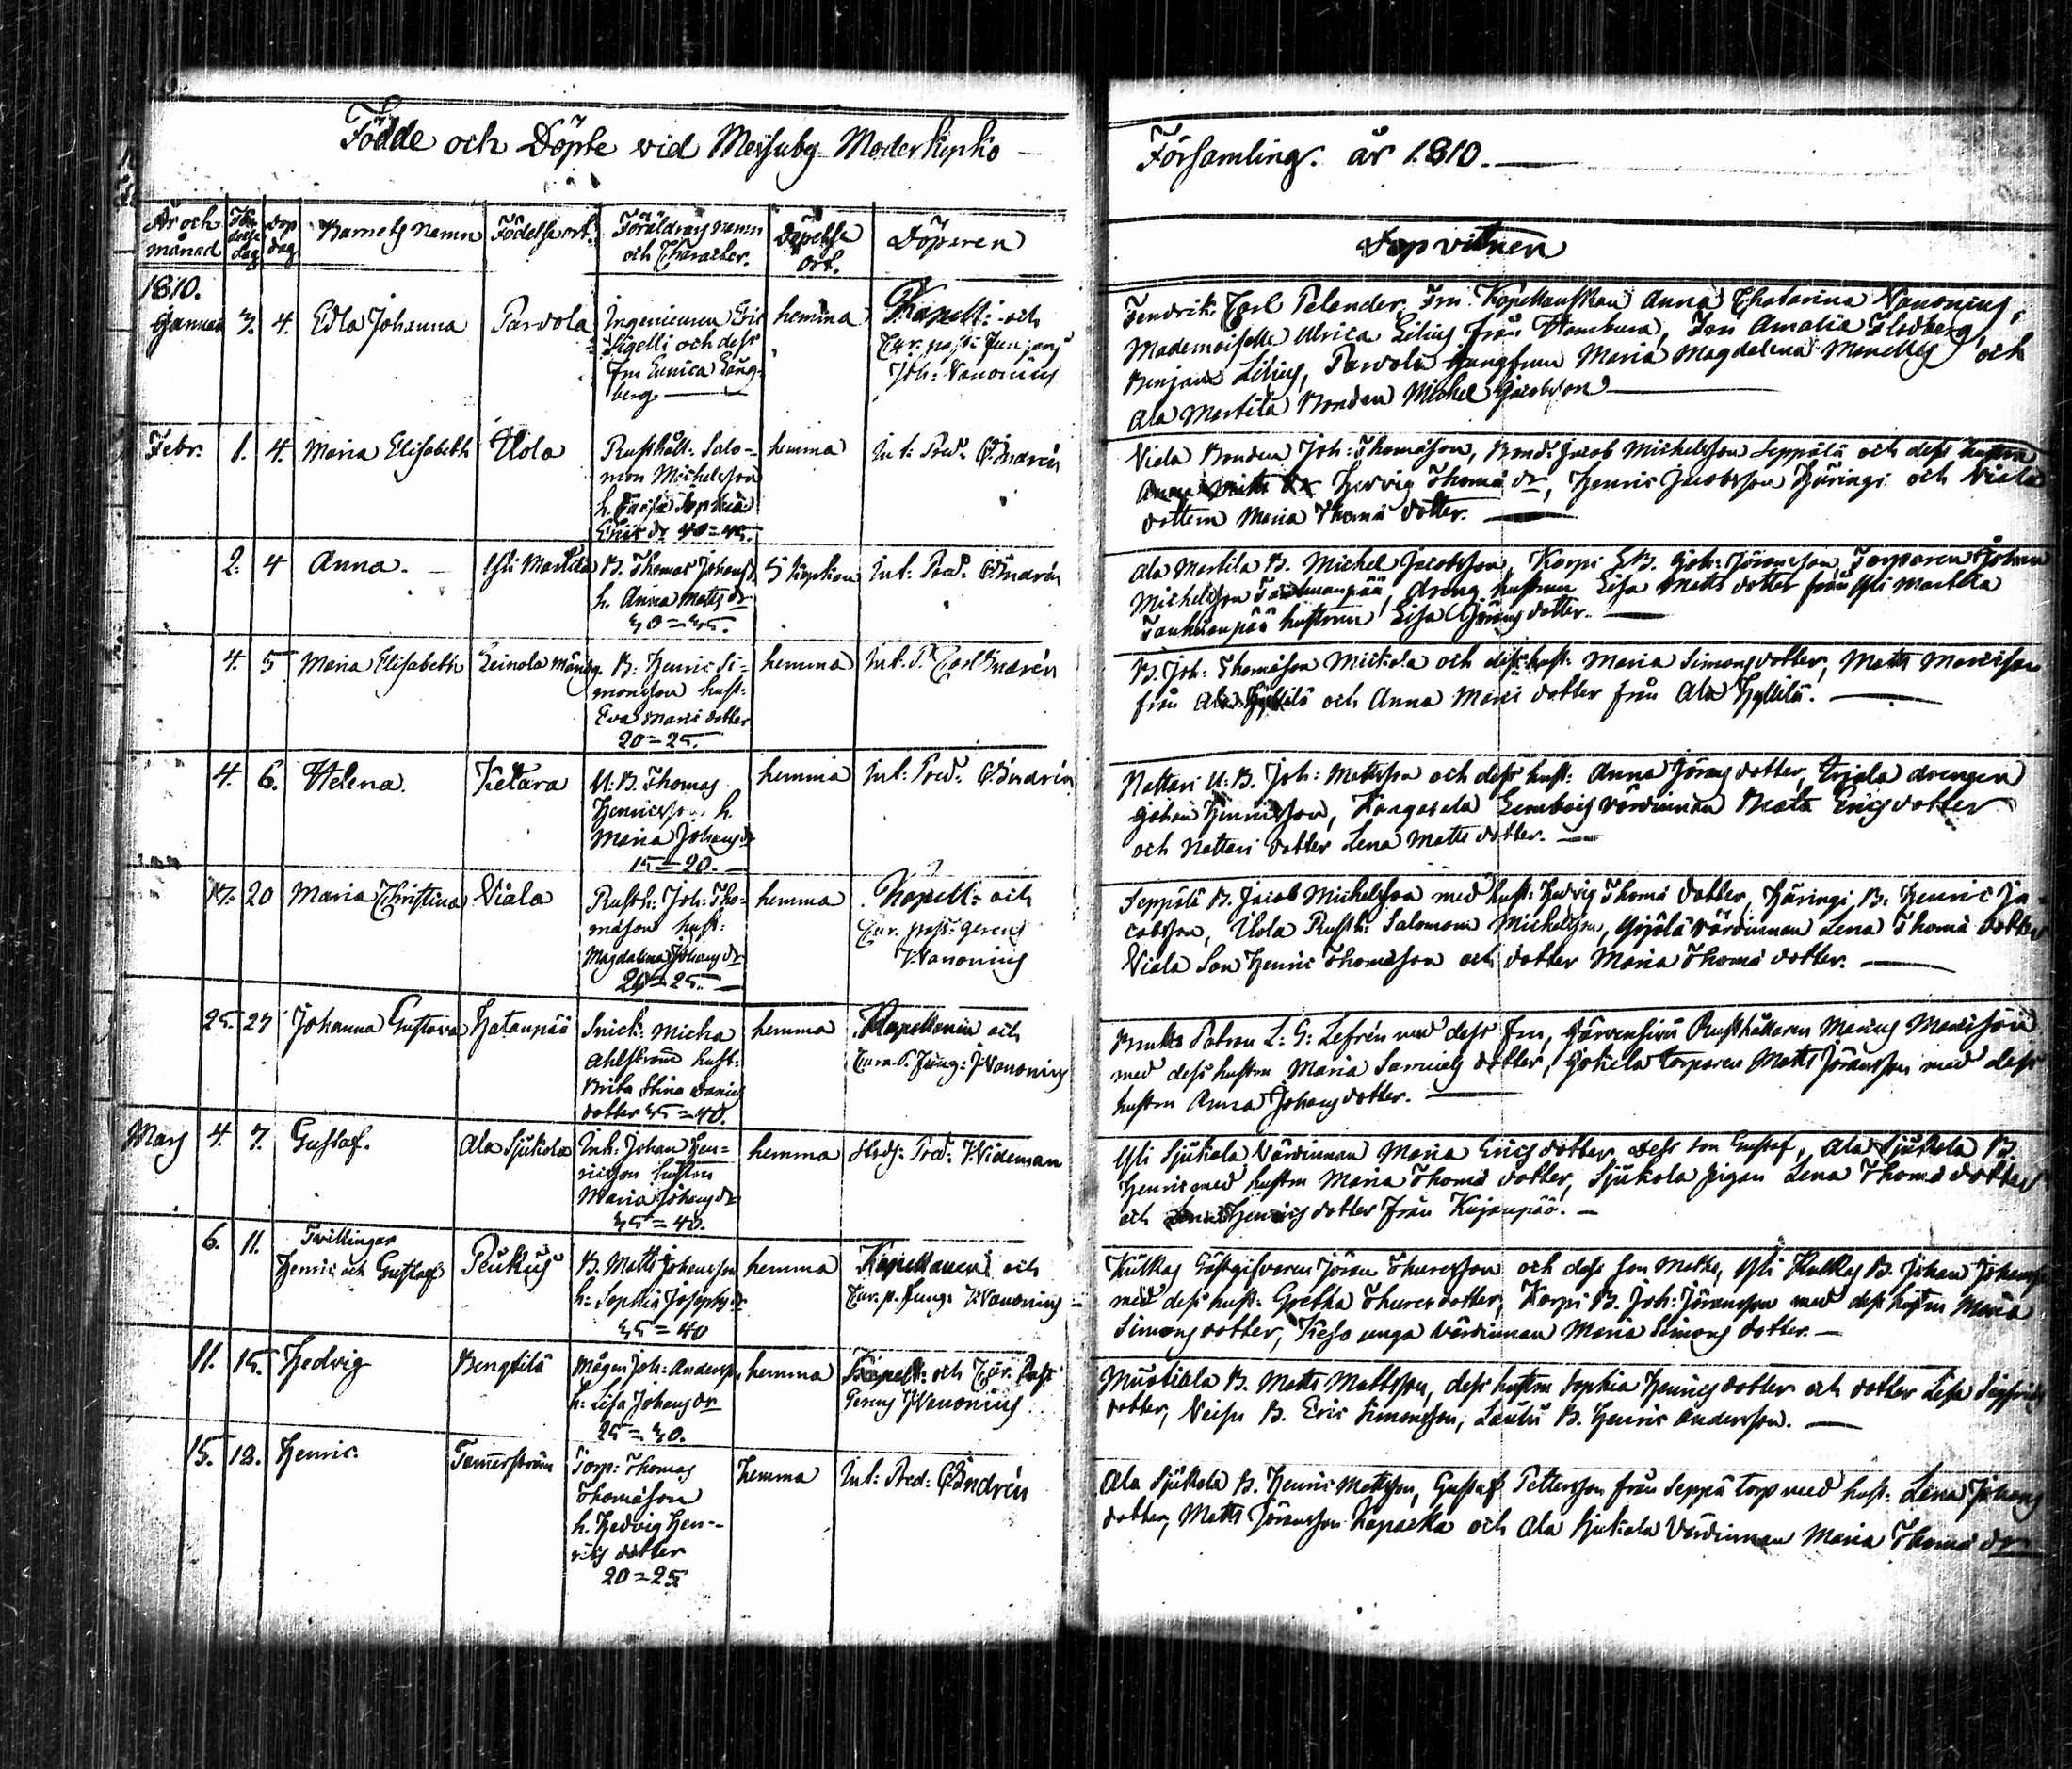 Födde och Döpte vid Messuby Moderkyrko
Församling. år 1810.
År och månad
Födelse dag
dop dag
Barnets Namn
Födelse ort.
Föräldrars namn och Character.
Döpelse ort.
Döparen
Dop vitnen
1810.
Januar 3. 4. Edla Johanna
Parvola
Ingenieuren Eric
och dess
Fru Eunica Läng-
berg.
hemma
Kapell: och
Cur. past:
Joh: Wanonius
Fendrik Carl Pelander, Fru Kapellanskan Anna Chatarina Wanonius,
Mademoiselle Ulrica Lilius från Hambura, Fru Amalia Flodberg,
Benjam Lilius, Parvola Jungfrun Maria Magdalena och
Ala Martila Bonden Michel Jacobsson
Febr. 1. 4. Maria Elisabeth
Uola
Rusthåll: Salo-
mon Michelsson
h. Sophia
Erics dr 40=45.
hemma
Int: Pred: C. Indrén
Viala Bonden Joh: Thomasson, Bond: Jacob Michelsson Seppälä och dess hustru
Hedvig Thomæ dr, Henric Jacobsson Häringi och Viala
dottern Maria Thomæ dotter.
2. 4 Anna.
Yli Martila
B. Thomas Johanss.
h. Anna Matts dr
30=35.
I kyrkan
Int: Pred: C Indrén
Ala Martila B. Michel Jacobsson, Korpi B. Joh: Jöransson, Torparen Johan
Michelsson dreng hustrun Lisa Matts dotter från Yli Martila
hustrun Lisa Görans dotter.
4. 5 Maria Elisabeth
Leinola
B: Henric Si-
monsson hust:
Eva Marci dotter
20=25.
hemma
Int. P. Carl Indrén
B. Joh: Thomasson och dess hust: Maria Simons dotter, Matts Marcisson
från Ala Hyllilä och Anna Marci dotter från Ala Hyllilä.
4. 6. Helena.
Ketara
U: B. Thomas
Henricsson h.
Maria Johans dr
15=20.
hemma
Int: Pred: C. Indrén
Nattari U: B. Joh: Mattsson och dess hust: Anna Jörans dotter, drengen
Johan Henricsson, Kangasala värdinnan Beata Erics dotter
och Nattari dotter Lena Matts dotter.
17. 20 Maria Christina
Viala
Rusth: Joh: Tho-
masson hust:
Magdalena Johans dr
20=25.
hemma
Kapell: och
Cur. past: gerens
Wanonius
Seppälä B. Jacob Michelsson med hust: Hedvig Thomæ dotter, Häringi B. Henric Ja-
cobsson, Uola Rusth: Salomon Michelsson, värdinnan Lena Thomæ dotter
Viala Son Henric Thomasson och dotter Maria Thomæ dotter.
25. 27 Johanna Gustava
Hatanpää
Snick: Micha
Ahlström hust:
Brita Stina Daniels
dotter 35=40.
hemma
Kapellanen och
Wanonius
Bruks Patron L: G: Lefrén med dess Fru, Järvensivu Rusthållaren Marcus Marcisson
med dess hustru Maria Samuels dotter, Jokela torparen Matts Jöransson med dess
hustru Anna Johans dotter.
Mars 4. 7. Gustaf.
Ala Sjukola
Inh: Johan Hen-
ricsson hustrun
Maria Johans dr
35=40.
hemma
Pred: Wideman
Yli Sjukola Värdinnan Maria Erics dotter, dess son Gustaf, Ala Sjukola B.
Henric med hustru Maria Thomæ dotter, Sjukola pigan Lena Thomæ dotter
och Henrics dotter från Kujanpää.
6. 11. Tvillingar
Henric och Gustaf
B. Matts Johansson
h: Sophia Josephs dr
35=40
hemma
Kapellanen och
Wanonius
Kulkas Gästgifvaren Jöran Thuresson och dess son Matts, Yli Kulkas B. Johan
med dess hust: Gretha Thures dotter, Korpi B. Joh: Jöransson med dess hustru Maria
Simons dotter, unga värdinnan Maria Simons dotter.
11. 15. Hedvig
Bengtilä
Mågen Joh: Andersson
h: Lisa Johans dr
25=30.
hemma
Kapell: och Cur. Past
Gerens Wanonius
Mustiala B. Matts Mattsson, dess hustru Sophia Henrics dotter och dotter Lisa
dotter, Veisu B. Eric Simonsson, B. Henric Andersson.
15. 18. Henric.
Tammerström
Torp: Thomas
Thomasson
h. Hedvig Hen-
rics dotter
20=25
hemma
Int: Pred: C. Indrén
Ala Sjukola B. Henric Mattsson, Gustaf Pettersson från Seppä torp med hust: Lena Johans
dotter, Matts Jöransson och Ala Sjukola Värdinnan Maria Thomæ dr